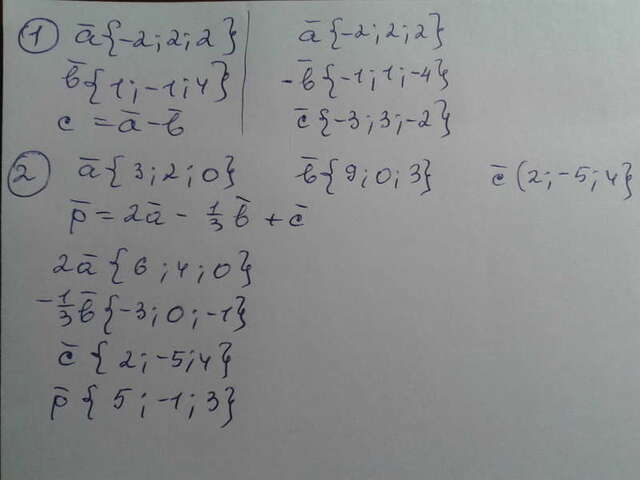 ① a̅{-2; 2; 2}
b̅{1; -1; 4}
c = a̅ - b̅
a̅{-2; 2; 2}
-b̅{-1; 1; -4}
c̅{-3; 3; -2}
② a̅{3; 2; 0} b̅{9; 0; 3} c̅(2; -5; 4}
p̅ = 2a̅ - 1/3 b̅ + c̅
2a̅{6; 4; 0}
-1/3 b̅{-3; 0; -1}
c̅{2; -5; 4}
p̅{5; -1; 3}